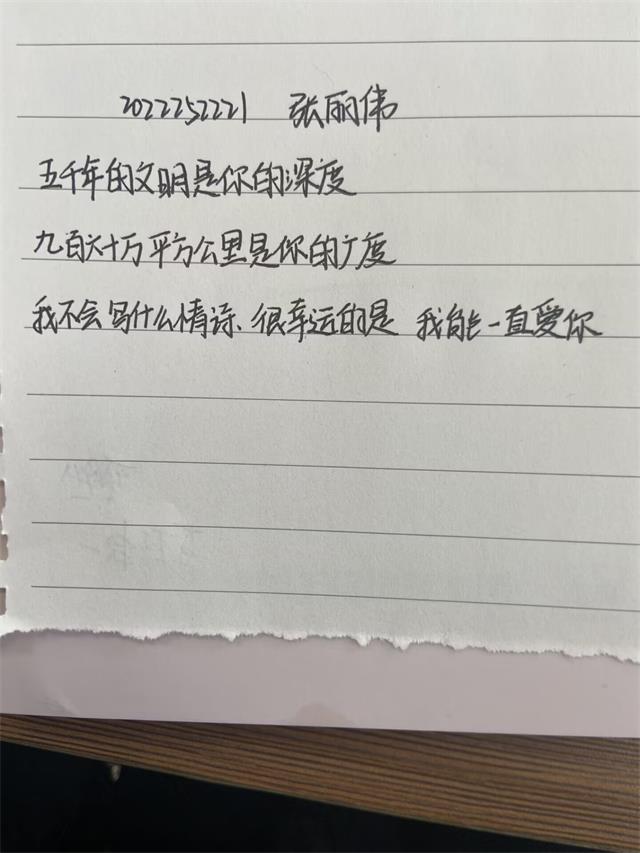 2022252221 张丽伟
五千年的文明是你的深度
九百六十万平方公里是你的广度
我不会写什么情诗、很幸运的是 我能一直爱你